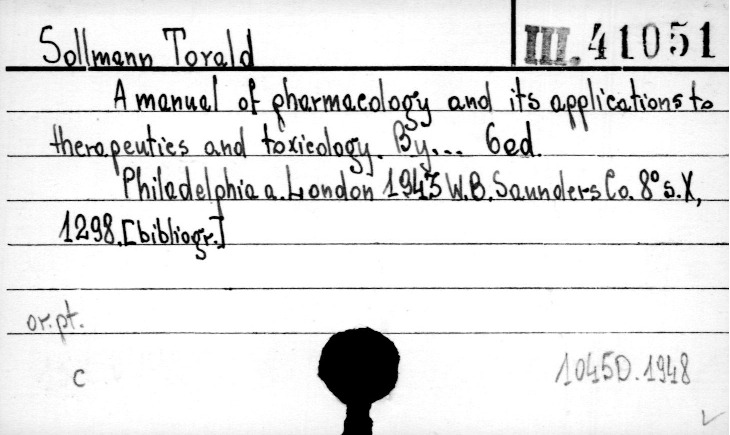 Sollmann Torald
III. 41051
A manual of pharmacology and its applications to
therapeutics and toxicology. By... 6ed.
Philadelphia a. London 1943 W.B. Saunders Co. 8° s. X,
1298. [bibliogr.]
or. pt.
c
1045D. 1948